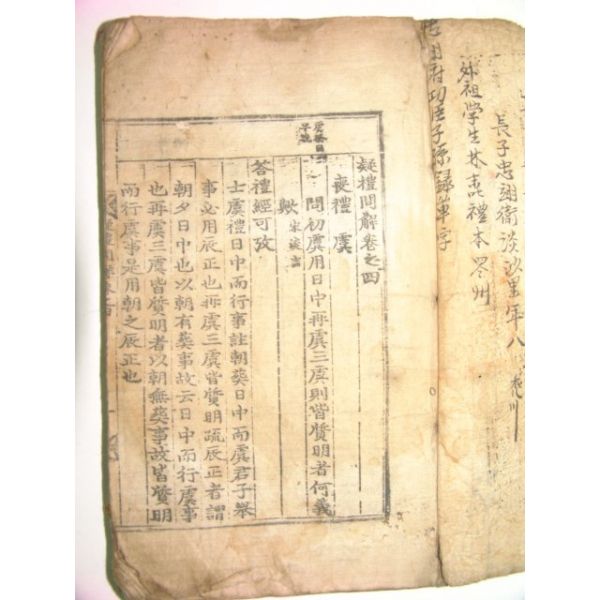 長子忠翊衛淡沙里年八
外祖學生林 禮本 州
功臣子孫錄單字
疑禮問解卷之四
喪禮 虞
問初虞用日中再虞三虞則皆質明者何義
歟 宋浚吉
答禮經可攷
士虞禮日中而行事註朝葬日中而虞君子舉
事必用辰正也再虞三虞皆質明疏辰正者謂
朝夕日中也以朝有葬事故云日中而行虞事
也再虞三虞皆質明者以朝無葬事故皆質明
而行虞事是用朝之辰正也